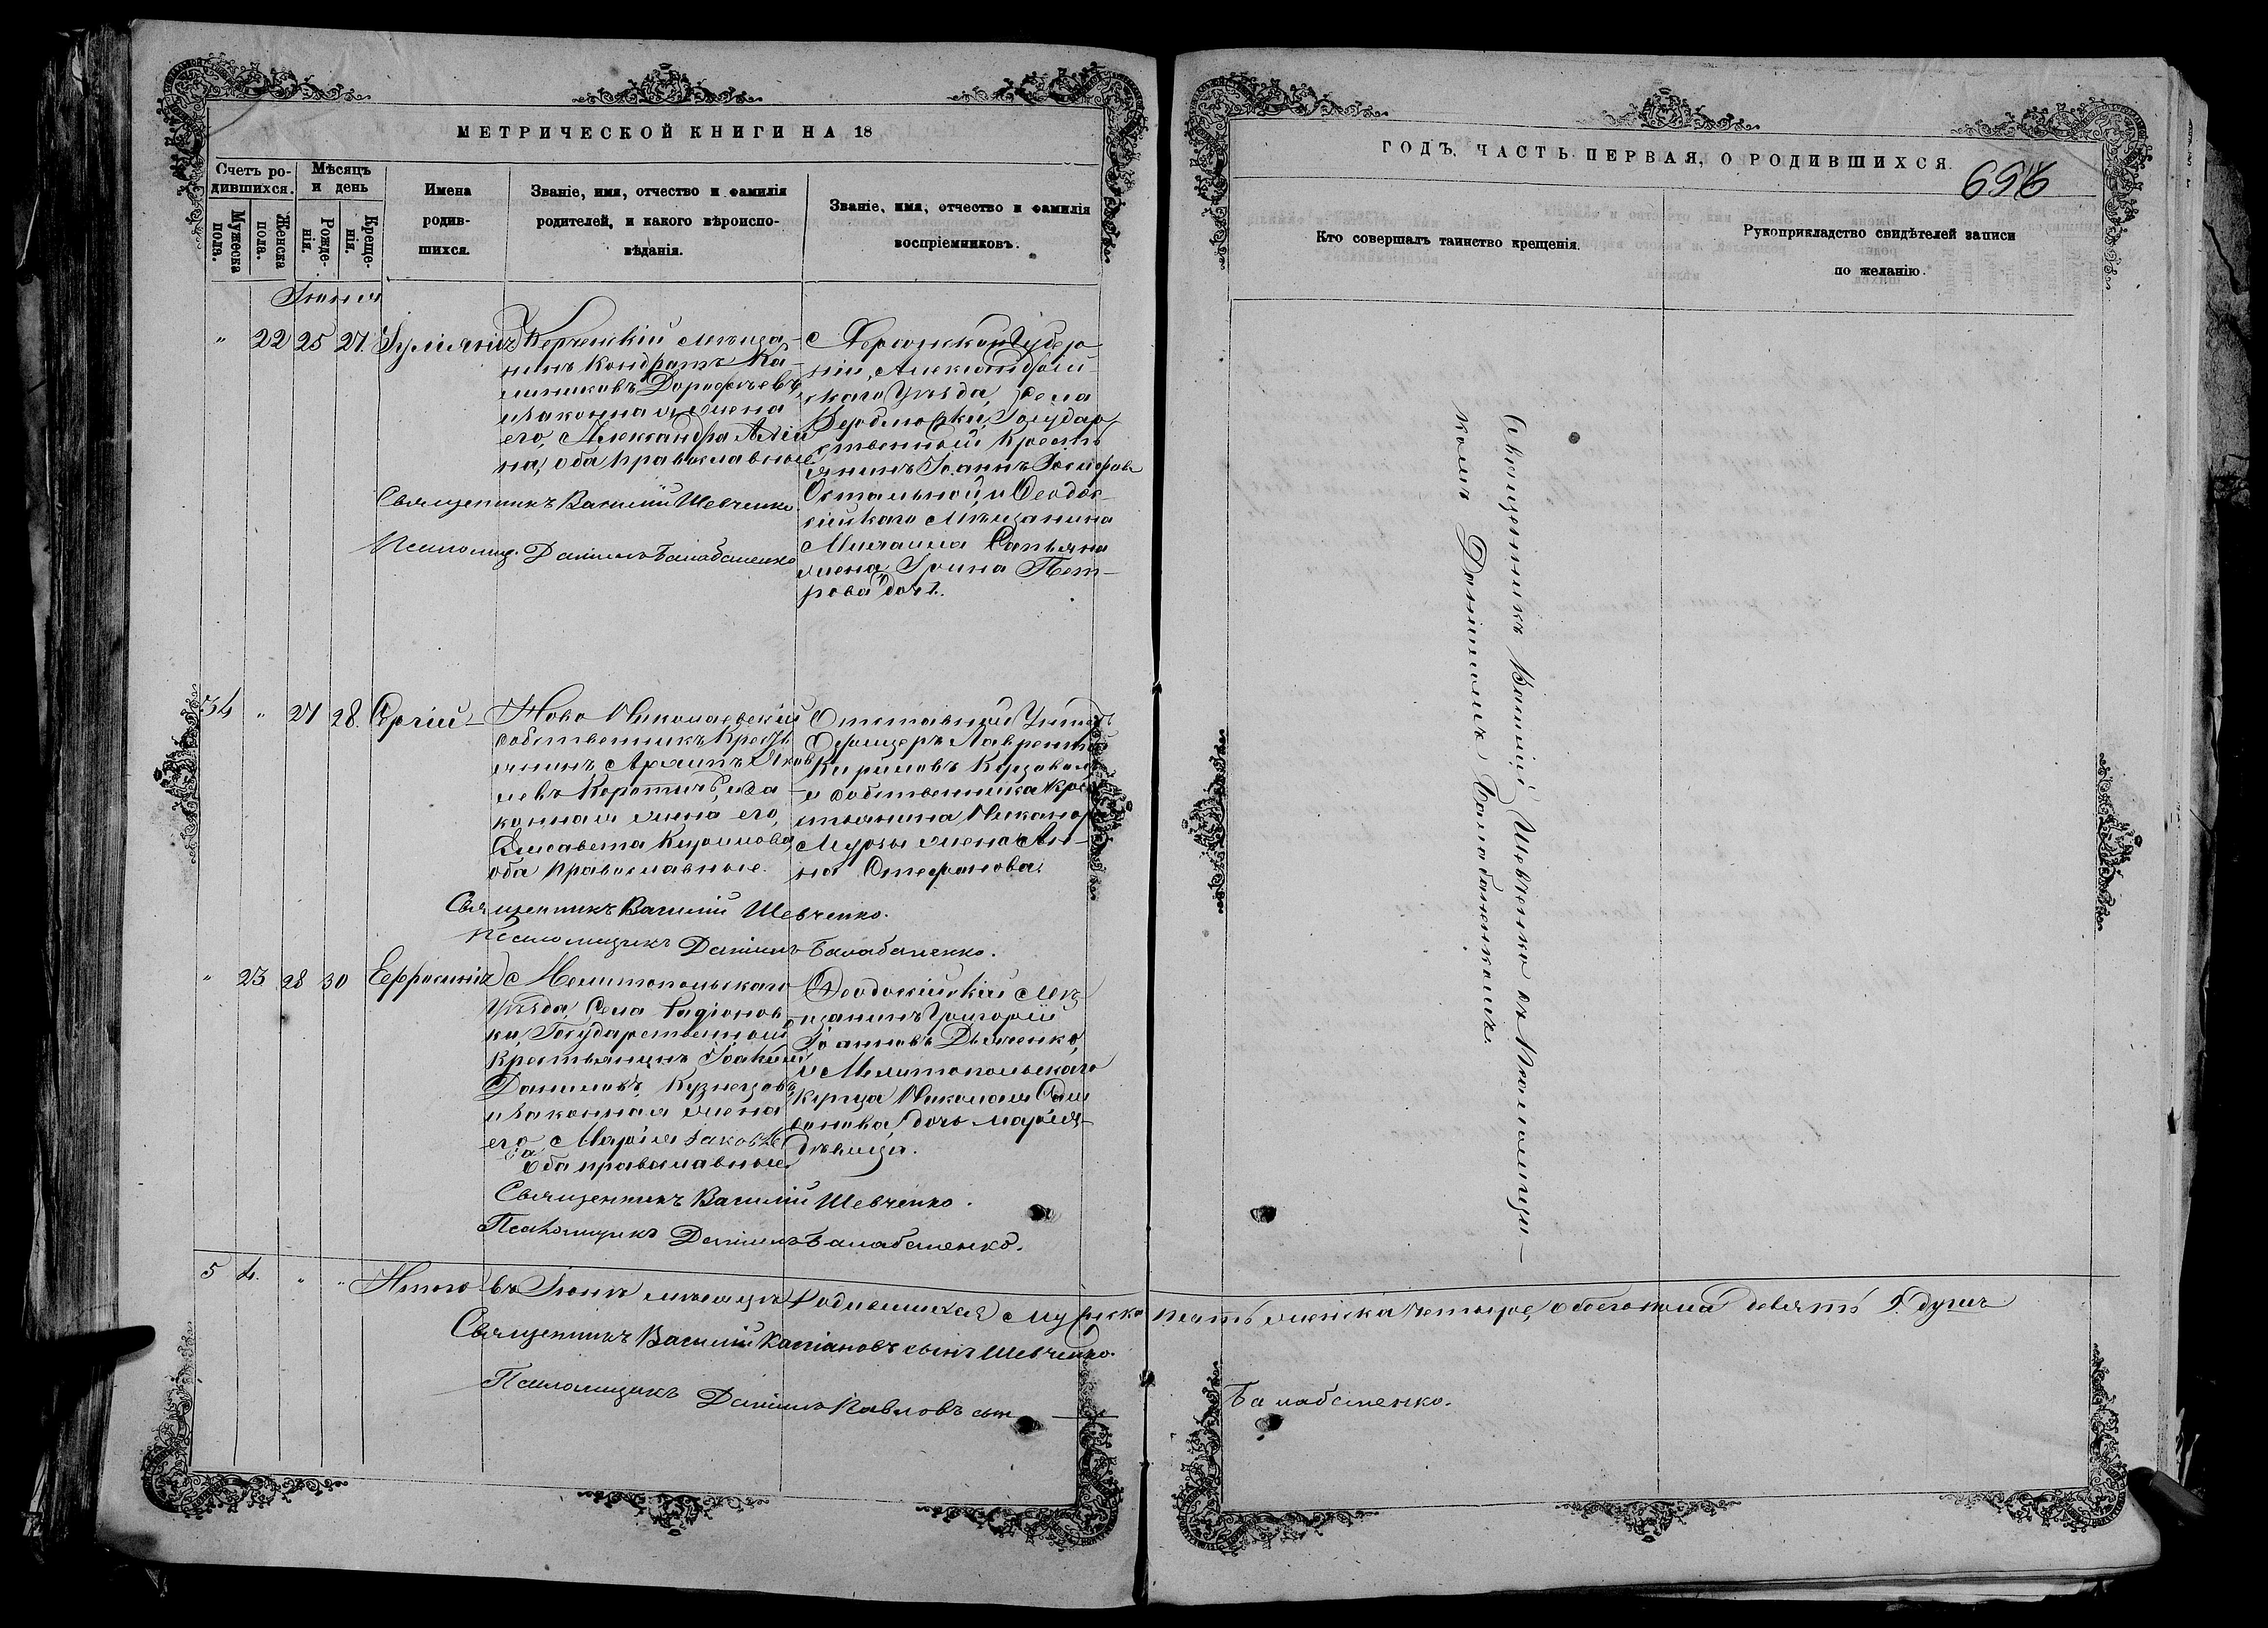 МЕТРИЧЕСКОЙ КНИГИ НА 18
Счетъ ро-
дившихся.
Мужеска
пола.
Женска
пола.
Мѣсяцъ
и день
Рожде-
нія.
Креще-
нія.
Имена
родив-
шихся.
Званіе, имя, отчество и фамилія
родителей, и какого вѣроиспо-
вѣданія.
Званіе, имя, отчество и фамилія
воспріемниковъ.
Іюня
" 22 25 27. Іуліанія
Керченскій мѣща-
нинъ Кондратъ Ка-
лениковъ Дорофеевъ,
и законная жена
его, Александра
на, оба православные
Херсонской Губер-
ніи, Александрій-
скаго Уѣзда, Села
Государ-
ственный Кресть
янинъ Іоаннъ Іосифовъ
и Ѳеодос-
ійскаго мѣщанина
Михаила
жена Ирина Пет-
рова дочь.
Священникъ Василій Шевченко.
Псаломщ. Даніилъ Балабаненко
34 " 27 28. Сергій
Ново Николаевскій
собственникъ Кресть
янинъ Архипъ Яков
левъ Коротичъ, и за
конная жена его,
Елисавета Кирилова,
оба православные.
Отставной Унтеръ
Офицеръ Лаврентій
Кириловъ
и собственника Кре
стьянина Никанор
Мурзы жена Ан-
на Стефанова.
Священникъ Василій Шевченко.
Псаломщикъ Даніилъ Балабаненко.
" 23 28 30 Ефросинія
Мелитопольскаго
Уѣзда, Села Радіонов
ки, Государственный
Крестьянинъ Іоакимъ
Даниловъ Кузнецовъ,
и законная жена
его Марія Яковле
ва
Оба православные.
Ѳеодосійскій Мѣ
щанинъ Григорій
Іоанновъ Дьяченко,
и Мелитопольскаго
Купца Николая
дочь Марія
дѣвица.
Священникъ Василій Шевченко.
Псаломщикъ Даніилъ Балабаненко.
5 4. " " Итого въ Іюнѣ мѣсяцѣ Родившихся Мужеска пять женска четыре, обоего пола девять 9. душъ
Священникъ Василій Кассіановъ сынъ Шевченко.
Псаломщикъ Даніилъ Павловъ сын
Балабаненко.
ГОДЪ, ЧАСТЬ ПЕРВАЯ, О РОДИВШИХСЯ.
Кто совершалъ таинство крещенія.
Рукоприкладство свидѣтелей записи
по желанію.
Священникъ Василій Шевченко съ Псаломщи-
комъ Даніиломъ Балабаненкомъ.